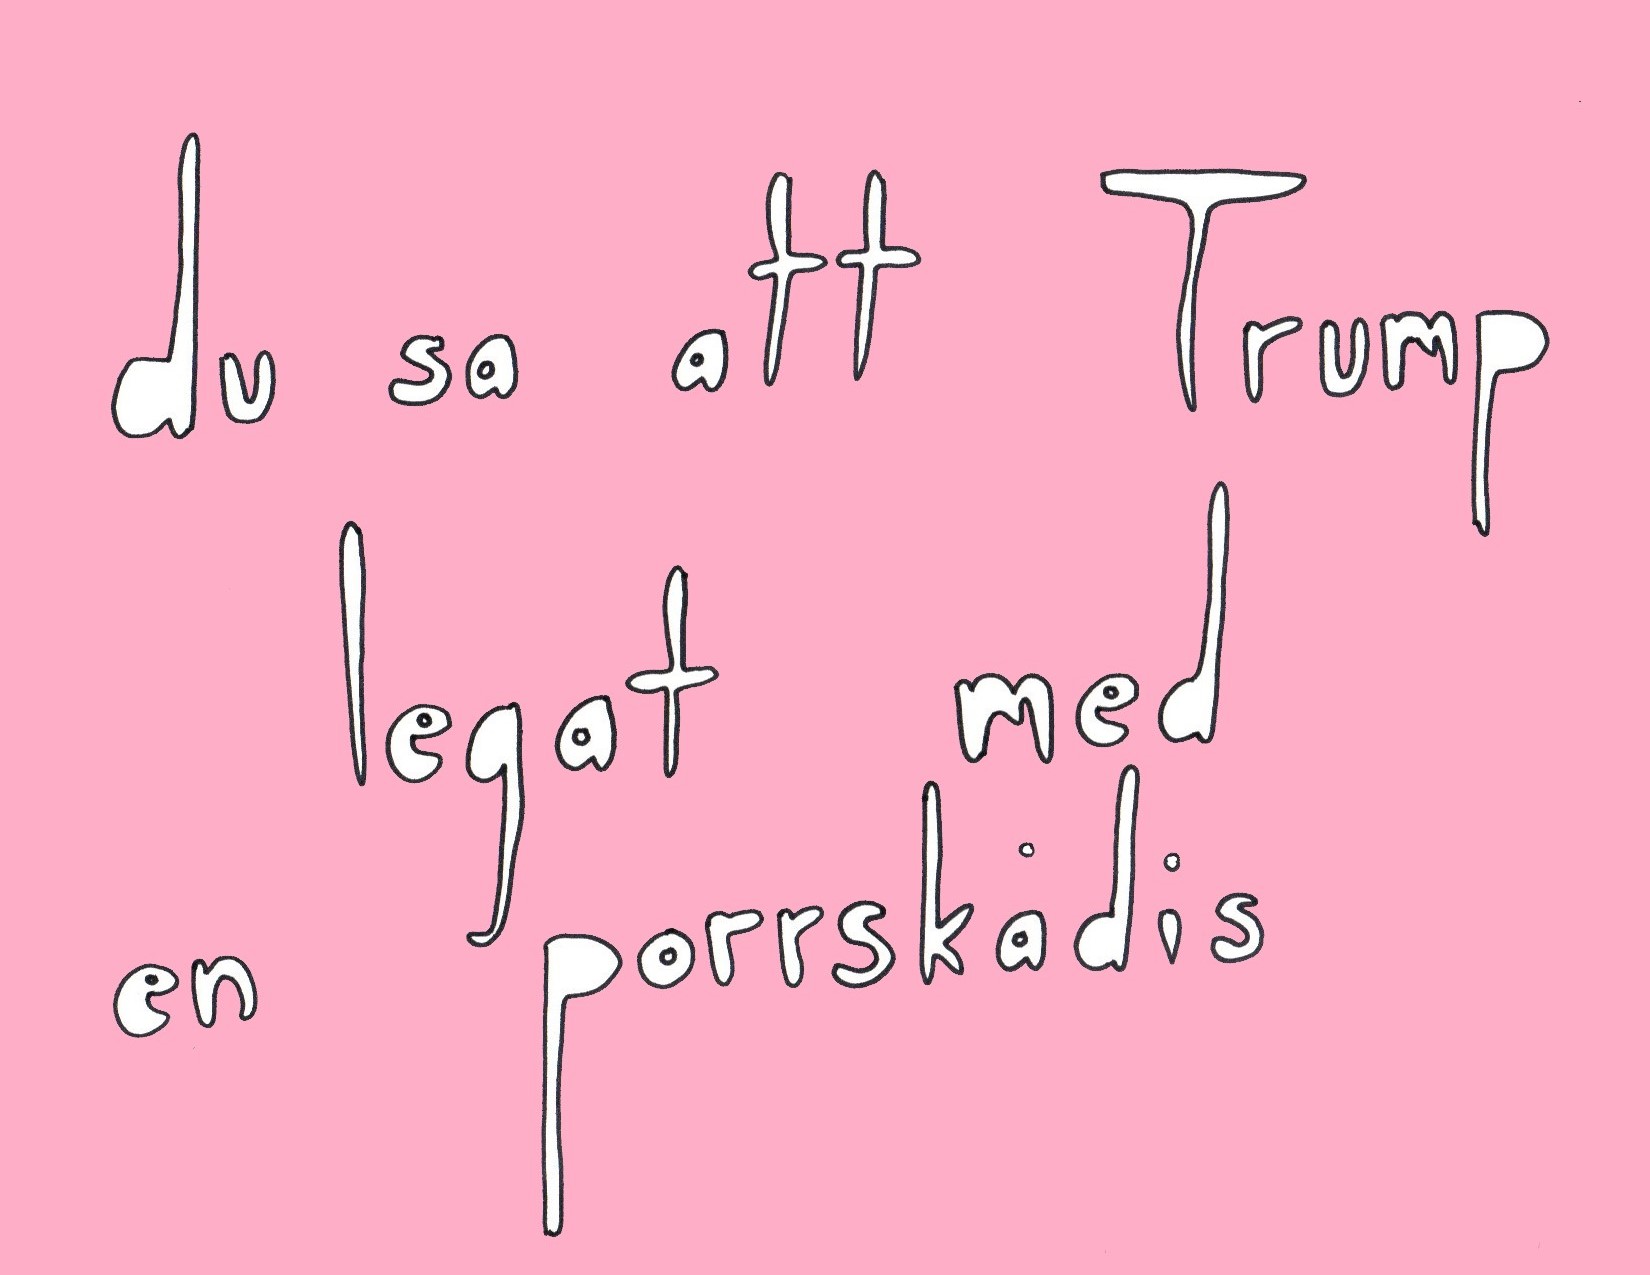 du sa att Trump
legat med
en porrskådis